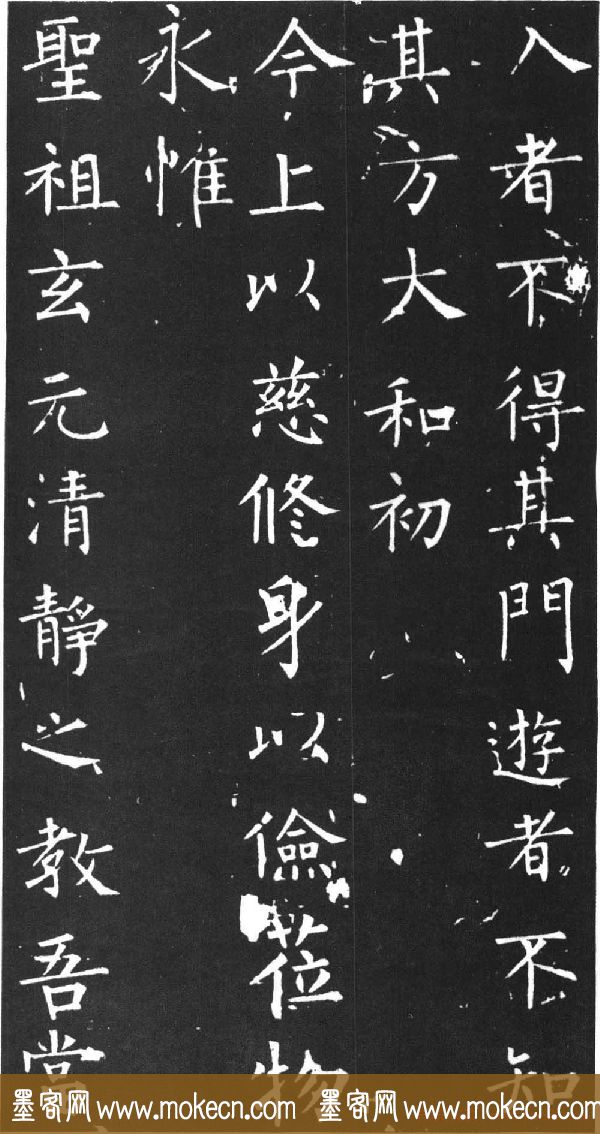 入者不得其門遊者不知
其方大和初
今上以慈修身以儉莅物
永惟
聖祖玄元清靜之教吾當
墨客网 www.mokecn.com 墨客网 www.mokecn.com